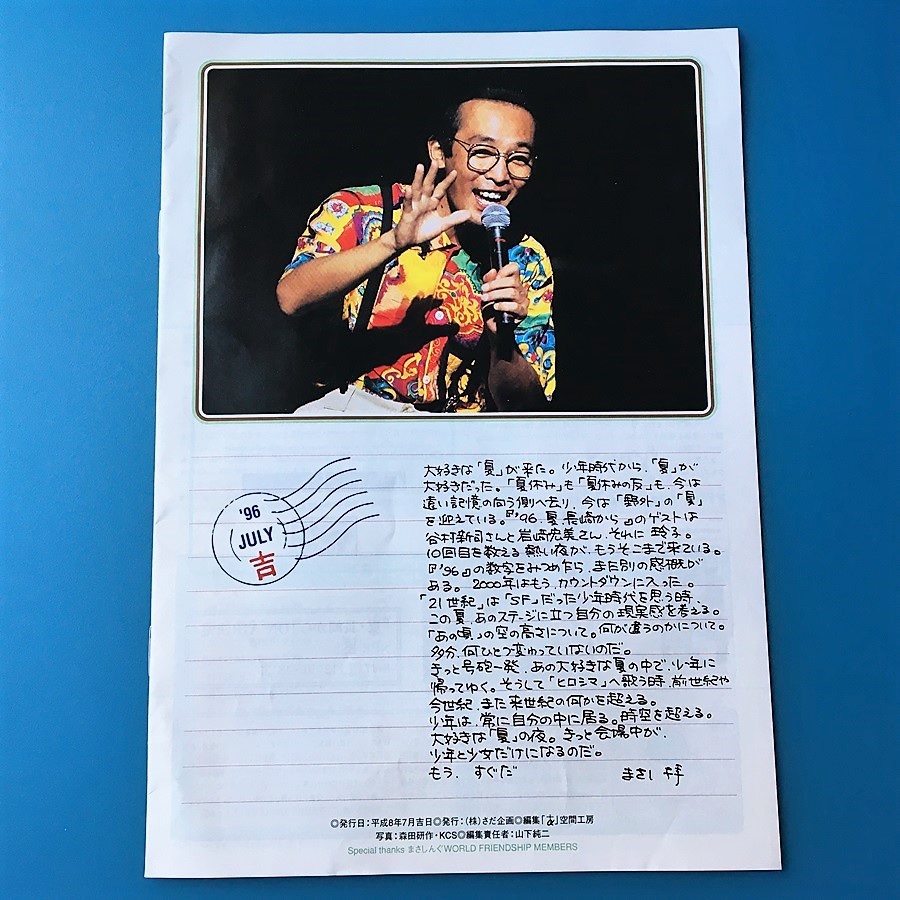 '96
JULY
吉
大好きな「夏」が来た。少年時代から、「夏」が
大好きだった。「夏休み」も「夏休みの友」も、今は
遠い記憶の向う側へ去り、今は「野外」の「夏」
を迎えている。『'96.夏.長崎から』のゲストは
谷村新司さんと岩崎宏美さん、それに 玲子。
10回目を数える熱い夜が、もうそこまで来ている。
『'96』の数字をみつめ乍ら、また別の感慨が
ある。 2000年はもう、カウントダウンに入った。
「21世紀」は「SF」だった少年時代を思う時、
この夏、あのステージに立つ自分の現実感を考える。
「あの頃」の空の高さについて。何が違うのかについて。
多分、何ひとつ変わっていないのだ。
きっと号砲一発、あの大好きな夏の中で、少年に
帰ってゆく。そうして「ヒロシマ」へ歌う時、前世紀や
今世紀、また来世紀の何かを超える。
少年は、常に自分の中に居る。時空を超える。
大好きな「夏」の夜。きっと会場中が、
少年と少女だけになるのだ。
もう、すぐだ まさし 拝
◎発行日:平成8年7月吉日◎発行:(株)さだ企画◎編集「あ」空間工房
写真:森田研作・KCS◎編集責任者:山下純二
Special thanks まさしんぐWORLD FRIENDSHIP MEMBERS